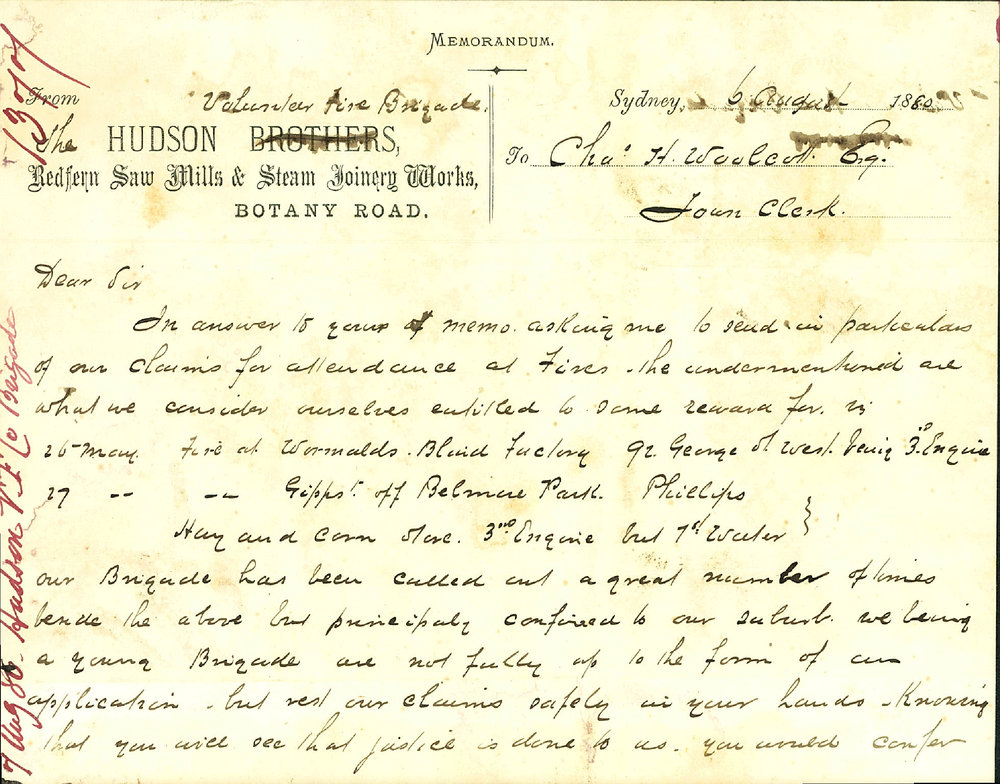 MEMORANDUM.
From Volunteer Fire Brigade.
Sydney, 6 August 1880
The HUDSON BROTHERS,
To Chas. H. Woolcott Esq.
Redfern Saw Mills & Steam Joinery Works,
BOTANY ROAD.
Town Clerk.
Dear Sir
In answer to yours of memo. asking me to send in particulars
of our claims for attendance at Fires. the undermentioned are
what we consider ourselves entitled to some reward for. viz
26 May. Fire at Wormalds. Blind Factory 92 George St West. being 3rd Engine
27 -- -- Gipps St. off Belmore Park. Phillips
Hay and Corn Store. 3rd Engine but 1st Water
our Brigade has been called out a great number of times
beside the above but principaly confined to our suburb. we being
a young Brigade are not fully up to the form of an
application. but rest our claims safely in your hands. Knowing
that you will see that justice is done to us. you would confer
7 Aug 80. Hudson V.F. Co Brigade